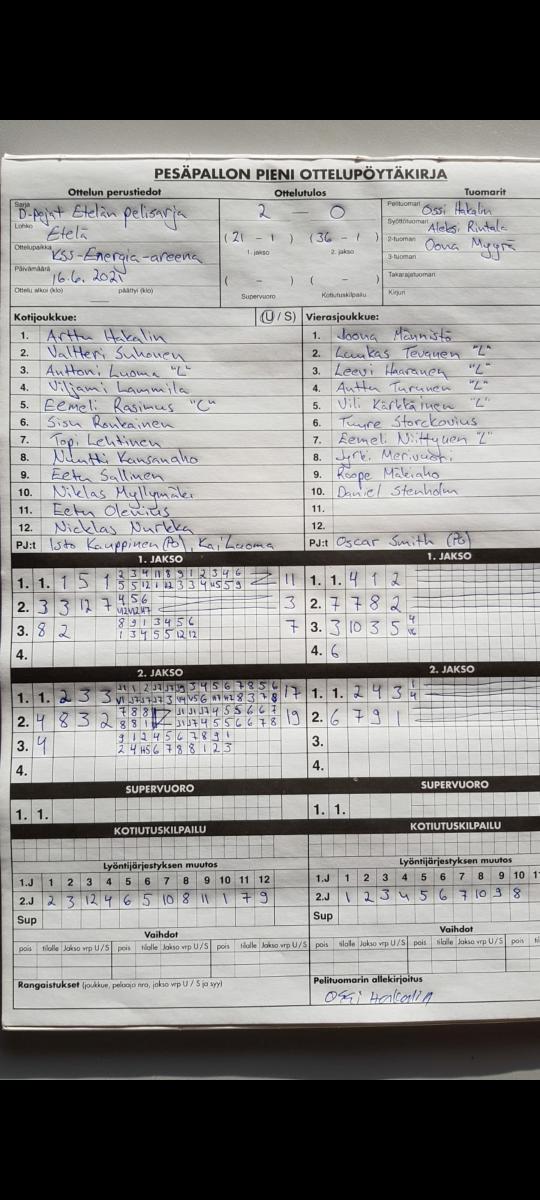 PESÄPALLON PIENI OTTELUPÖYTÄKIRJA
Ottelun perustiedot
Ottelutulos
Tuomarit
Sarja D-pojat Etelän pelisarja
2 – 0
Pelituomari Ossi Hakalin
Lohko Etelä
(21 – 1) (36 – 1)
Syöttötuomari Aleksi Rintala
1. jakso 2. jakso
2-tuomari Oona Myyrä
Ottelupaikka KSS-Energia-areena
3-tuomari
Päivämäärä 16.6. 2021
( – ) ( – )
Takarajatuomari
Ottelu alkoi (klo) päättyi (klo)
Supervuoro Kotiutuskilpailu
Kirjuri
Kotijoukkue: (U / S)
Vierasjoukkue:
1. Arttu Hakalin
2. Valtteri Suhonen
3. Anttoni Luoma "L"
4. Viljami Lammila
5. Eemeli Rasimus "C"
6. Sisu Ronkainen
7. Topi Lehtinen
8. Kansanaho
9. Eetu Sallinen
10. Niklas Myllymäki
11. Eetu Olenius
12. Nicklas Nurkka
PJ:t Isto Kauppinen (Po), Kai Luoma
1. Joona Männistö
2. Luukas Tevanen "L"
3. Leevi Haaranen "L"
4. Anttu Turunen "L"
5. Vili Kärkkäinen "L"
6. Tuure Storckovius
7. Eemeli Niittynen "L"
8. Jyrki
9. Roope Mäkiaho
10. Daniel Stenholm
11.
12.
PJ:t Oscar Smith (Po)
1. JAKSO
1. 1. 1 5 1
11
2. 3 3 12 7 4 5 6
3
3. 8 2 8 9 1 3 4 5 6
1 3 4 5 5 12 12
7
4.
1. JAKSO
1. 1. 4 1 2
2. 7 7 8 2
3. 3 10 3 5
4. 6
2. JAKSO
1. 1. 2 3 3
17
2. 4 8 3 2
19
3. 4 9 1 2 4 5 6 7 8 9 1
4.
2. JAKSO
1. 1. 2 4 3
2. 6 7 9 1
3.
4.
SUPERVUORO
1. 1.
SUPERVUORO
1. 1.
KOTIUTUSKILPAILU
KOTIUTUSKILPAILU
Lyöntijärjestyksen muutos
1.J 1 2 3 4 5 6 7 8 9 10 11 12
2.J 2 3 12 4 6 5 10 8 11 1 7 9
Sup
Lyöntijärjestyksen muutos
1.J 1 2 3 4 5 6 7 8 9 10
2.J 1 2 3 4 5 6 7 10 9 8
Sup
Vaihdot
pois tilalle Jakso vrp U / S pois tilalle Jakso vrp U / S pois tilalle Jakso vrp U / S
Vaihdot
pois tilalle Jakso vrp U / S pois tilalle Jakso vrp U / S pois tilalle
Rangaistukset (joukkue, pelaaja nro, jakso vrp U / S ja syy)
Pelituomarin allekirjoitus
Ossi Hakalin